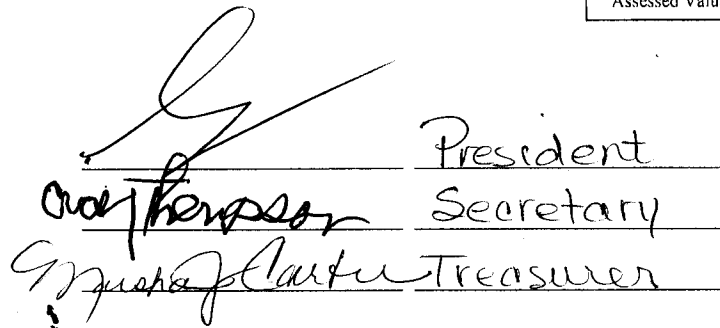 Assessed Valu
President
Thompson Secretary
Carter Treasurer